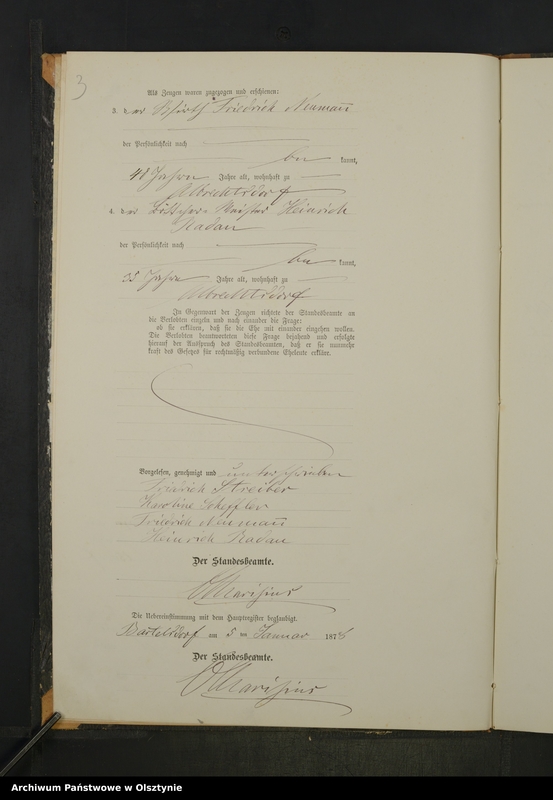 3
Als Zeugen waren zugezogen und erschienen:
3. der Wirth Friedrich Neumann
der Persönlichkeit nach
be kannt,
48 Jahre Jahre alt, wohnhaft zu
Albrechtsdorf
4. der Böttcher-Meister Heinrich
Radau
der Persönlichkeit nach
be kannt,
35 Jahre Jahre alt, wohnhaft zu
Albrechtsdorf
In Gegenwart der Zeugen richtete der Standesbeamte an
die Verlobten einzeln und nach einander die Frage:
ob sie erklären, daß sie die Ehe mit einander eingehen wollen.
Die Verlobten beantworteten diese Frage bejahend und erfolgte
hierauf der Ausspruch des Standesbeamten, daß er sie nunmehr
kraft des Gesetzes für rechtmäßig verbundene Eheleute erkläre.
Vorgelesen, genehmigt und unterschrieben
Friedrich Streiber
Karoline Scheffler
Friedrich Neumann
Heinrich Radau
Der Standesbeamte.
Die Uebereinstimmung mit dem Hauptregister beglaubigt.
Bartelsdorf am 5 ten Januar 187
Der Standesbeamte.
Archiwum Państwowe w Olsztynie